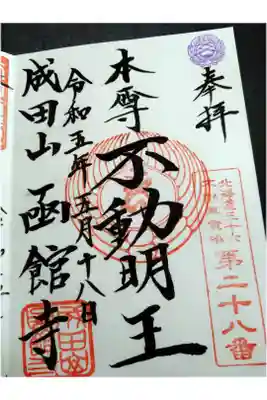 奉拝
北海道三十六
不動尊霊場
第二十八番
本尊 不動明王
令和五年五月十八日
成田山 函館寺